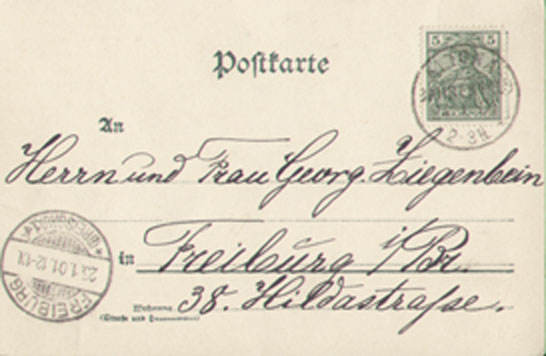 Postkarte
5 5
2-3N
An
Herrn und Frau Georg Ziegenbein
in Freiburg i/Br.
38. Hildastraße.
Wohnung
(Straße und Hausnummer)
FREIBURG
23.1.01.12-1N
(BREISGAU)